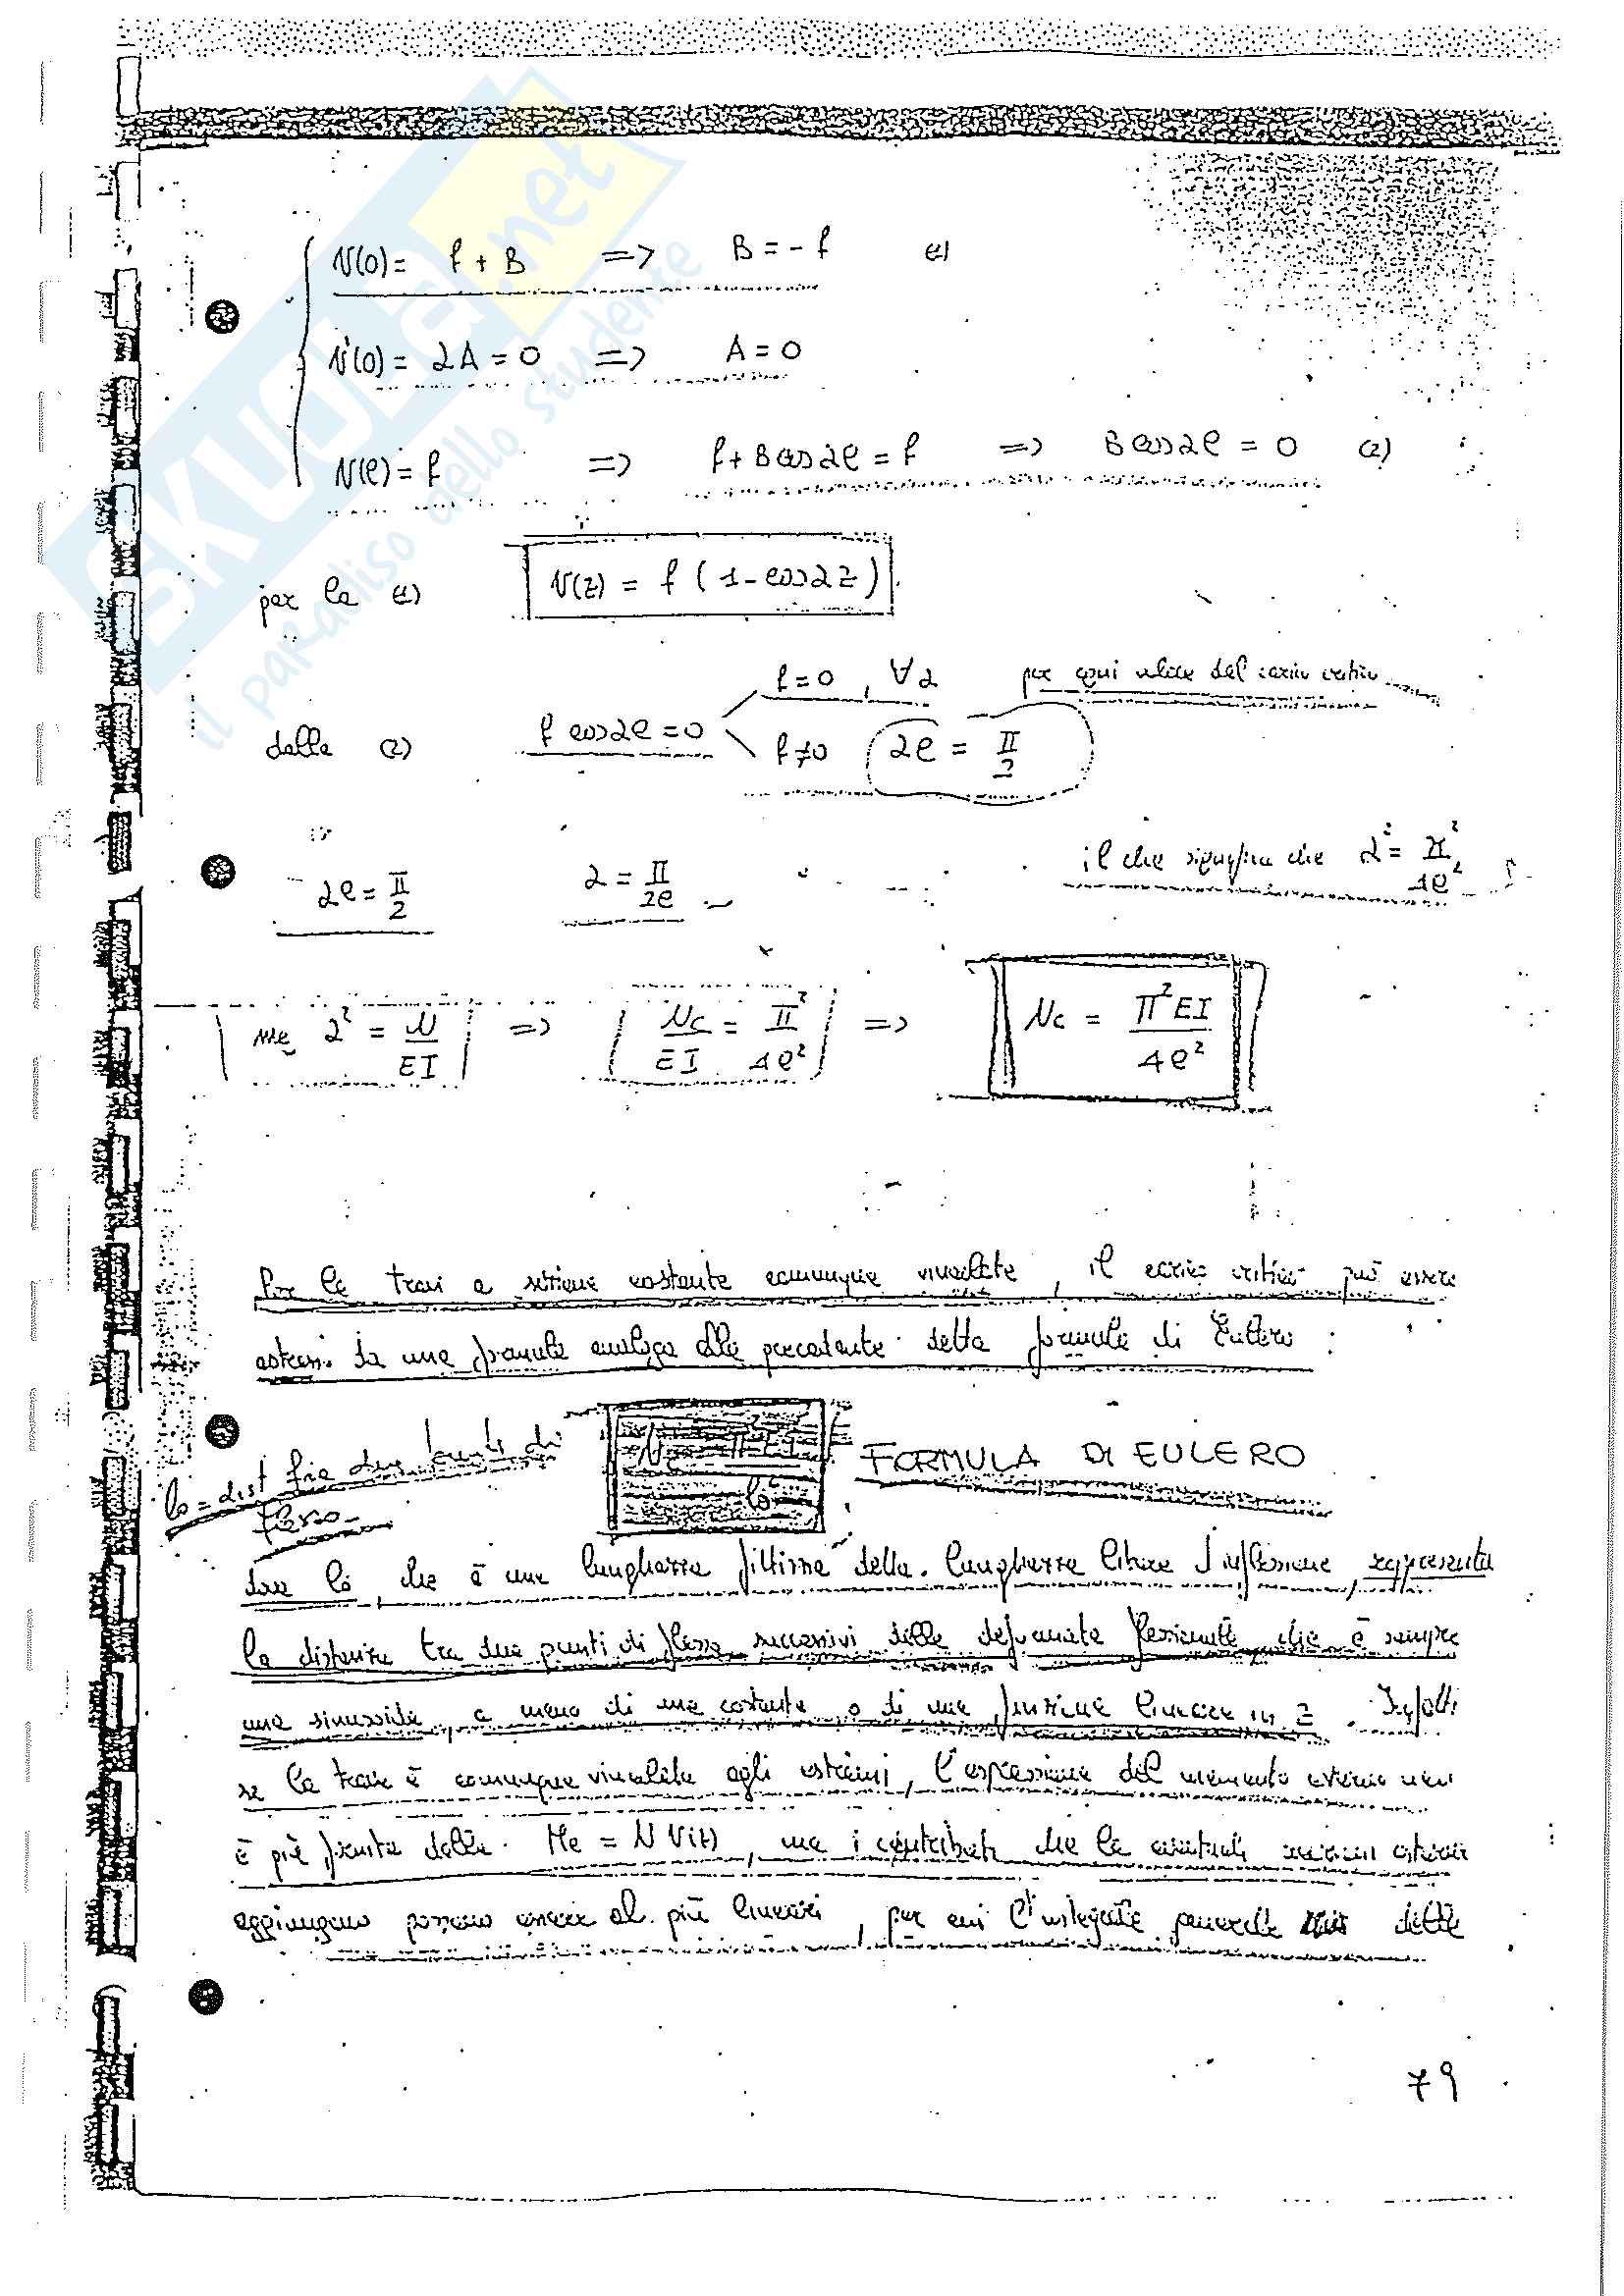 V(0) = f + B => B = - f (1)
V'(0) = αA = 0 => A = 0
V(l) = f => f + B cos αl = f => B cos αl = 0 (2)
per la (1) V(z) = f (1 - cos αz)
f = 0, ∀α per ogni valore del carico critico
dalla (2) f cos αl = 0
f ≠ 0 αl = π/2
il che significa che α² = π²/4l²
αl = π/2 α = π/2l
ma α² = N/EI => Nc/EI = π²/4l² => Nc = π²EI/4l²
Per le travi a sezione costante comunque vincolate, il carico critico può essere
espresso da una formula analoga alla precedente detta formula di Eulero :
lo = dist fra due punti di
flesso
FORMULA DI EULERO
dove lo, che è una lunghezza fittizia detta lunghezza libera d'inflessione, rappresenta
la distanza tra due punti di flesso successivi della deformata flessionale, che è sempre
una sinusoide, a meno di una costante o di una funzione lineare in z. Infatti
se la trave è comunque vincolata agli estremi, l'espressione del momento esterno non
è più fornita dalla Me = N V(z), ma i contributi che le eventuali reazioni esterne
aggiungono possono essere al più lineari, per cui l'integrale generale della
79
SKUOLA.net
il paradiso dello studente